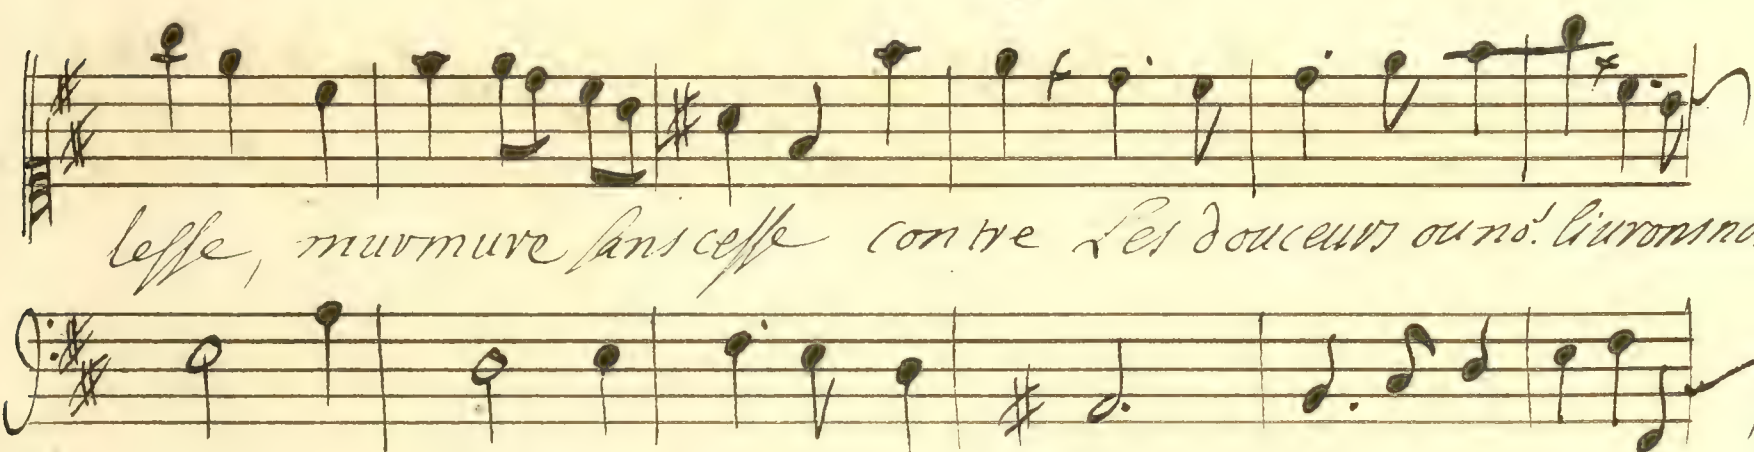 lesse, murmure sans cesse contre Les douceurs ou no.' liurons no